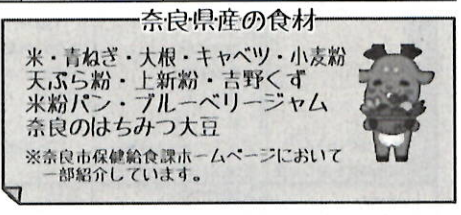 奈良県産の食材
米・青ねぎ・大根・キャベツ・小麦粉
天ぷら粉・上新粉・吉野くず
米粉パン・ブルーベリージャム
奈良のはちみつ大豆
※奈良市保健給食課ホームページにおいて
一部紹介しています。